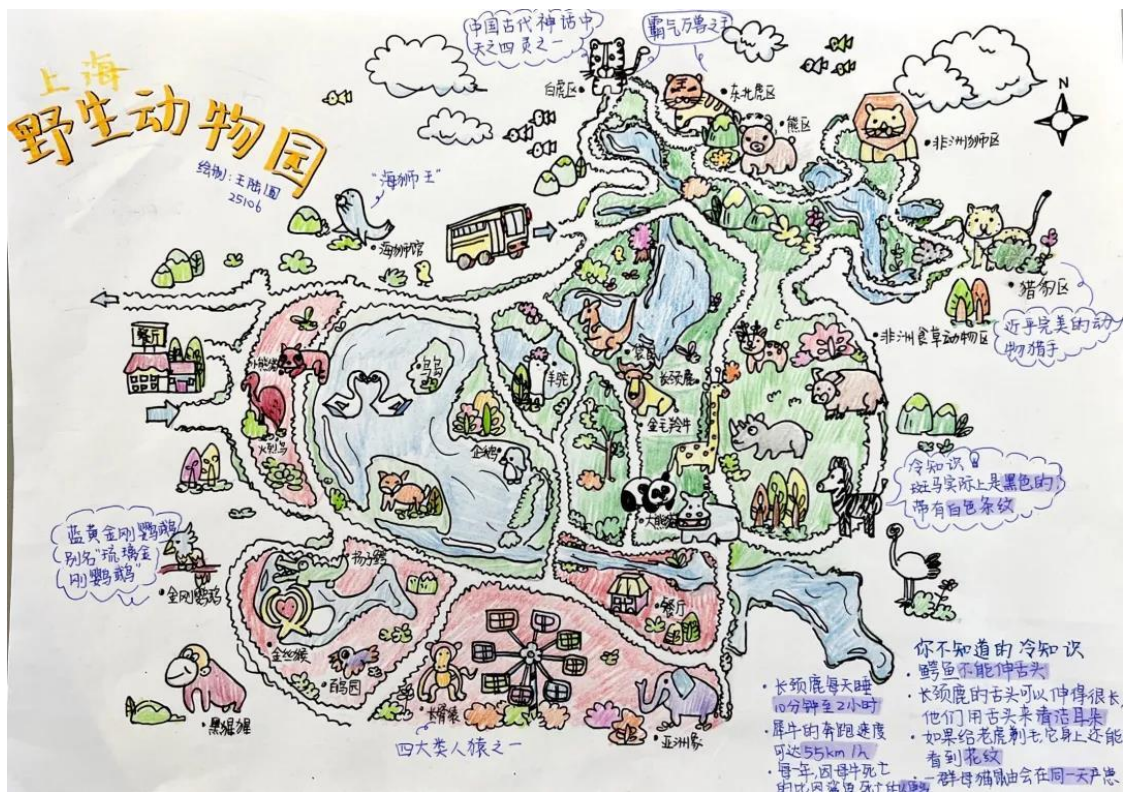 上海
野生动物园
绘制:王陆圆
25106
中国古代神话中
天之四灵之一
霸气万兽之王
白虎区
东北虎区
熊区
非洲狮区
N
"海狮王"
海狮馆
猎豹区
近乎完美的动
物猎手
非洲食草动物区
餐厅
小熊猫
火烈鸟
鸟岛
羊驼
袋鼠
长颈鹿
金毛羚牛
企鹅
大熊猫
冷知识
斑马实际上是黑色的
带有白色条纹
蓝黄金刚鹦鹉
别名"琉璃金
刚鹦鹉"
金刚鹦鹉
扬子鳄
金丝猴
百鸟园
餐厅
黑猩猩
长臂猿
四大类人猿之一
亚洲象
·长颈鹿每天睡
10分钟至2小时
·犀牛的奔跑速度
可达55km/h
·每一年,因母牛死亡
的比因鲨鱼死亡的
你不知道的冷知识
·鳄鱼不能伸舌头
·长颈鹿的舌头可以伸得很长,
他们用舌头来清洁耳朵
·如果给老虎剃毛,它身上还能
看到花纹
·一群母猫鼬会在同一天产崽